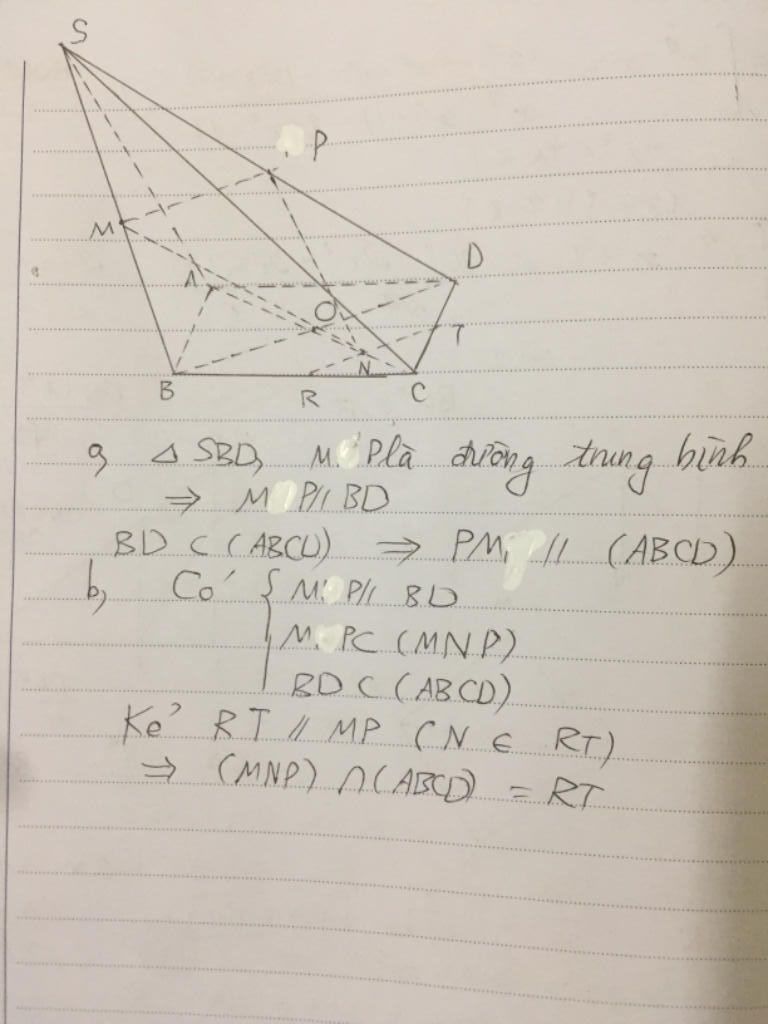 S
P
M
A
D
O
T
B
R
N
C
a, △ SBD, MP là đường trung bình
⇒ MP // BD
BD ⊂ (ABCD) ⇒ PM // (ABCD)
b, Có { MP // BD
MP ⊂ (MNP)
BD ⊂ (ABCD)
Kẻ RT // MP (N ∈ RT)
⇒ (MNP) ∩ (ABCD) = RT